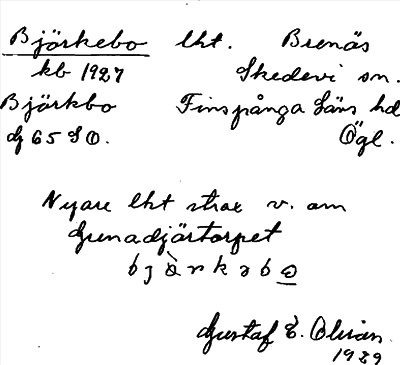 Björkebo lht. Brenäs
kb 1927 Skedevi sn.
Björkbo Finspånga läns hd
dj 65 SO. Ögl.
Nyare lht strax v. om
Grenadjärtorpet
Gustaf E.
1929